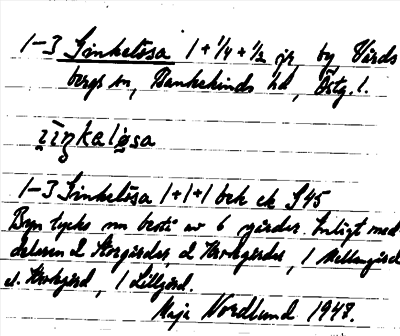 1-3 Sinketösa 1+1/4+1/2 jr, by Vårds
bergs sn, Hankekinds hd, Östg. l.
1-3 Sinketösa 1+1+1 bek ck S45
Byn tycks nu bestå av 6 gårdar. Enligt med
delaren 2 Storgårdar 2 Krokgårdar, 1 Mellangård
el. Krokgård, 1 Lillgård.
Maja Nordlund 1948.